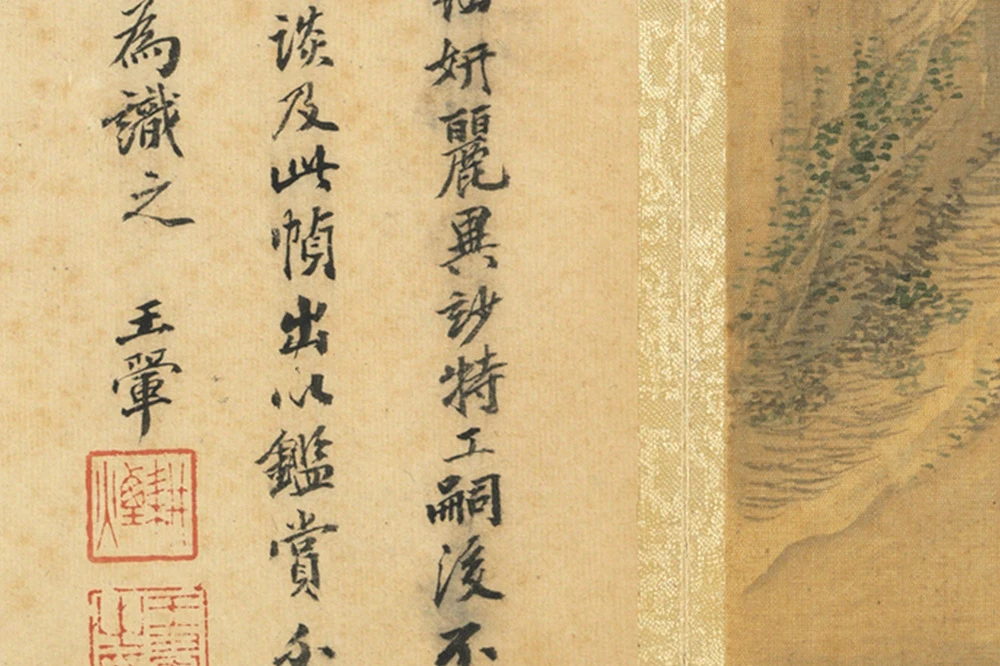 妍麗異妙特工嗣後不
談及此幀出以鑑賞
為識之 王翬
耕煙